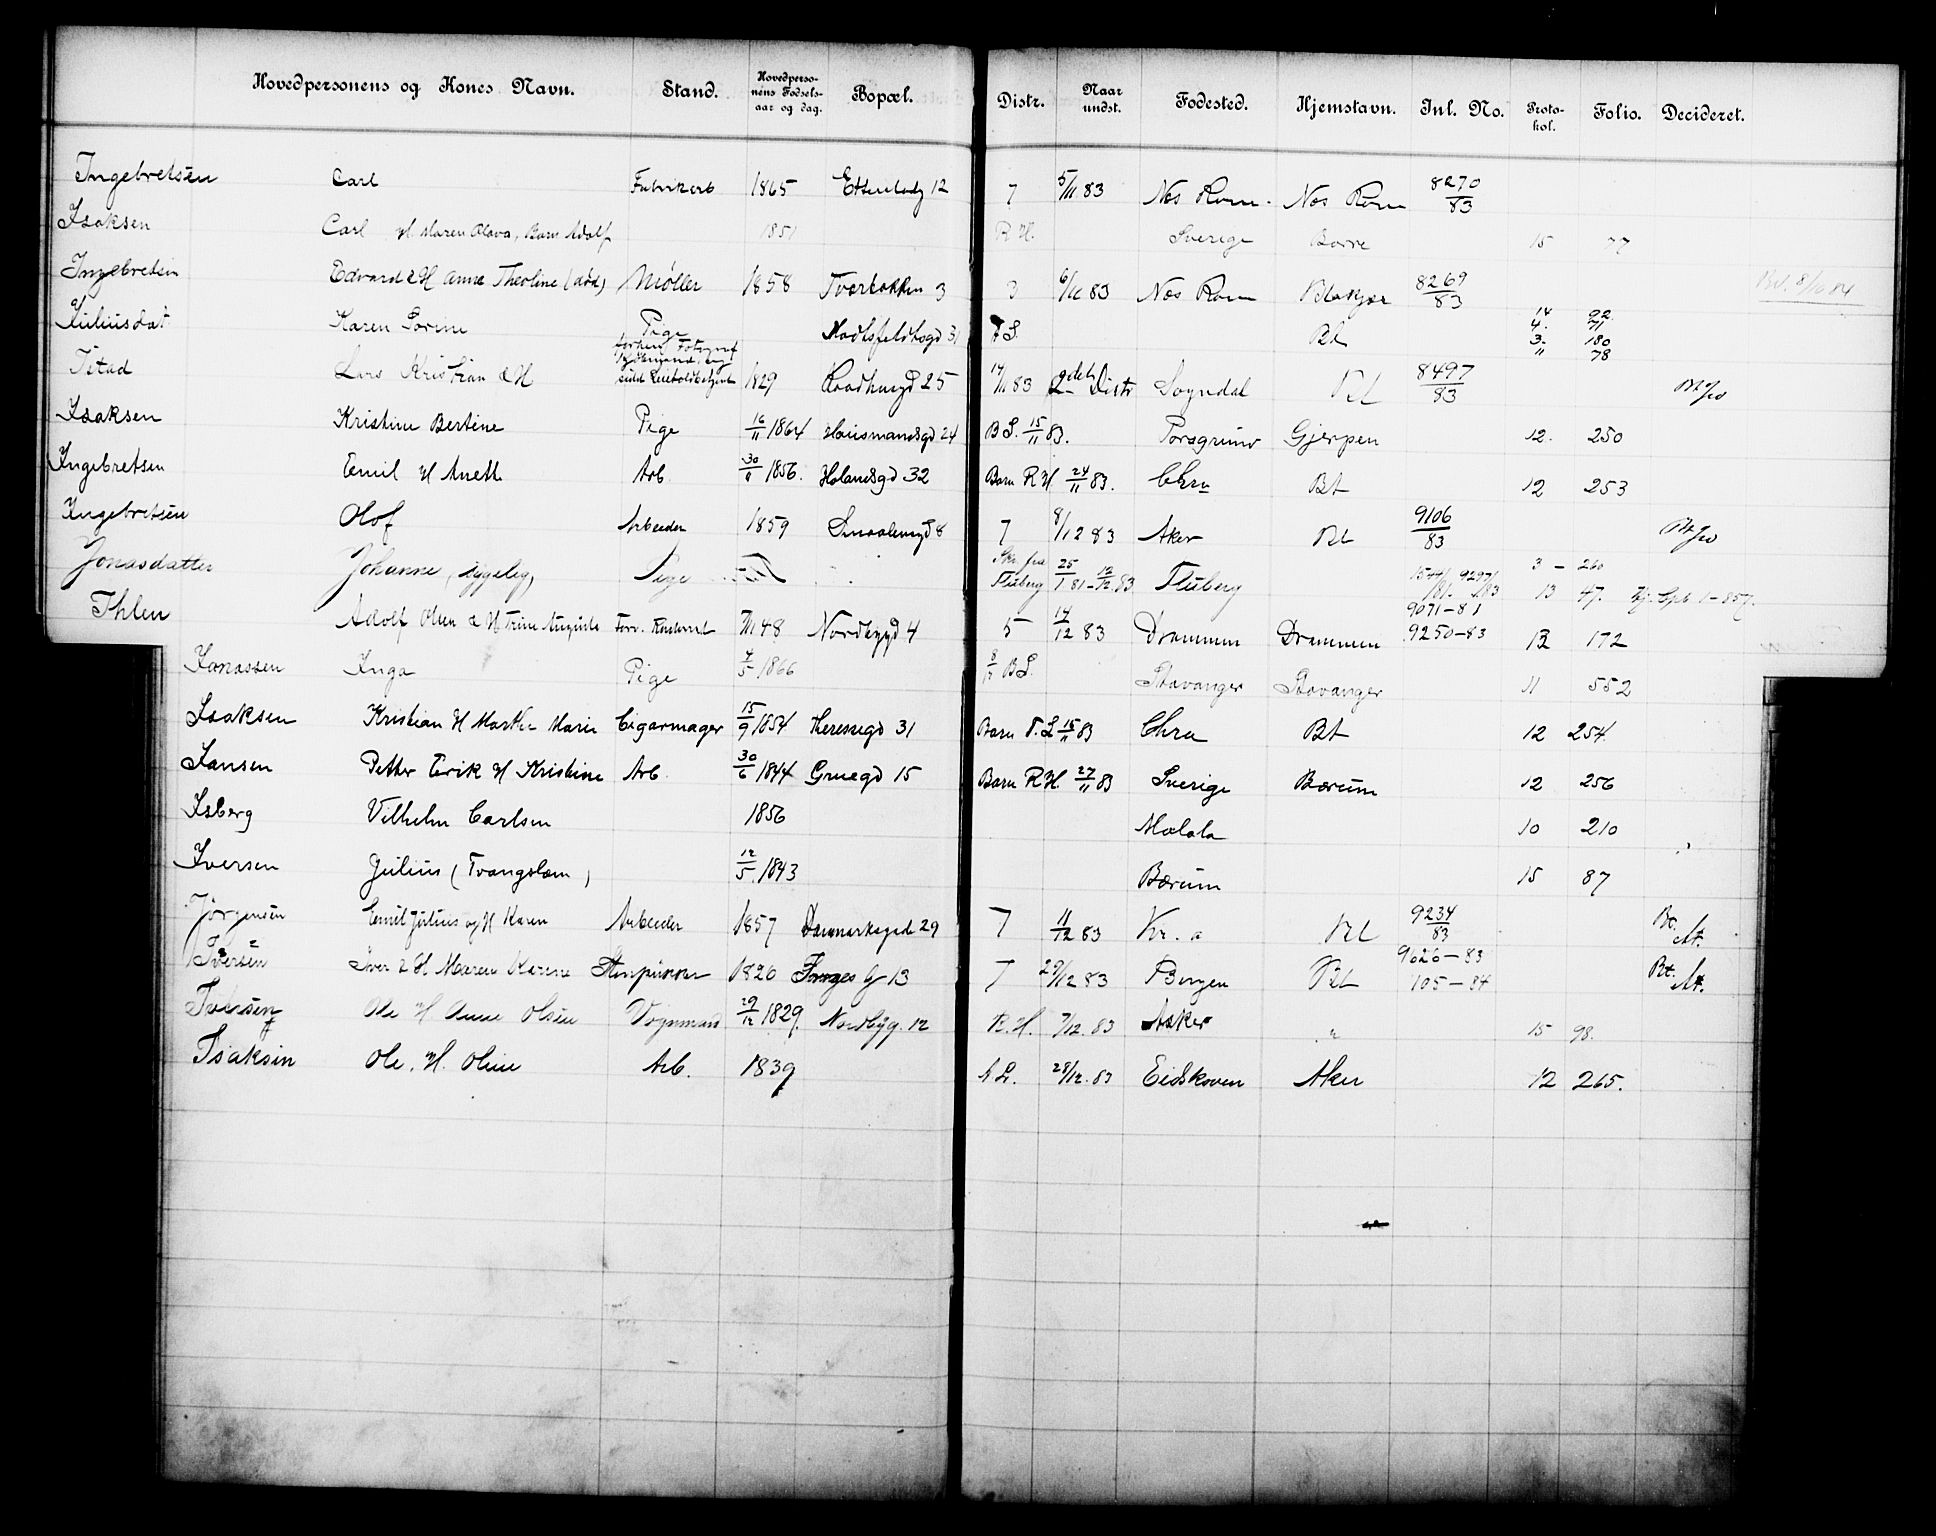 Hovedpersonens og Kones Navn. Stand. Hovedperso-nens Fødsels-aar og dag. Bopæl. Distr. Naar undst. Fødested. Hjemstavn. Inl. No. Proto-kol. Folio. Decideret.
Ingebretsen Carl Fabrikarb 1865 12 7 5/11 83 Nes Rom. Nes Rom 8270/83
Isaksen Carl H Maren Olava, Barn Adolf 1851 R H. Sverige Borre 15 77
Ingebretsen Edvard & H Anne Theoline (død) Møller 1858 Tverbakken 3 3 6/11 83 Nes Rom 8269/83
Juliusdat Karen Sorine Pige 31 S. Bt 14 92 4. 71 3. 180 " 78
Istad Lars Kristian & H forhen Fotograf 1829 Raadhusgd 25 14/11 83 2det Distr Sogndal Bt 8497/83
Isaksen Kristine Bertine Pige 16/11 1864 Hausmandsgd 24 B S. 15/11 83. Porsgrund Gjerpen 12. 250
Ingebretsen Emil H Anette Arb. 30/11 1856. Holandsgd 32 Barn R H. 24/11 83. Chra Bt 12 253
Ingebretsen Olof Arbeider 1859 Smaalensgd 8 7 8/12 83 Aker Bt 9106/83
Jonasdatter Johanne, Pige Fluberg 25/1 81 - 12/12 83 Fluberg 3 - 260 13 47.
Ihlen Adolf Olsen & H Trine Auguste 48 Nordbygd 4 5 14/12 83 Drammen Drammen 9071-81 9250-83 12 172
Jonassen Inga Pige 4/5 1866 8/12 B S. Stavanger Stavanger 11 552
Isaksen Kristian H Marthe Marie Cigarmager 15/9 1854 Theresesgd 31 Barn 15/11 83 Chra Bt 12 254
Jansen Petter Erik H Kristine Arb. 30/6 1844 Gruegd 15 Barn R H. 27/11 83 Sverige Bærum 12 256
Isberg Vilhelm Carlsen 1856 10 210
Iversen Julius (Tvangslem) 12/5 1843 Bærum 15 87
Jörgensen Emil Julius og H Karen Arbeider 1857 Danmarksgad 29 7 11/12 83 Kr. a Bt 9234/83 Bt.
Iversen Iver & H Maren Karine Stenpukker 1820 13 7 29/12 83 Bergen Bt 9626-83 105-84 Bt.
Iversen Ole H Anne Olsen Vognmand 29/12 1829 Nordbyg. 12 R. H. 7/12. 83 Asker " 15 98.
Isaksen Ole. H. Oline Arb. 1839 28/12. 83 Eidskoven Aker 12 265.